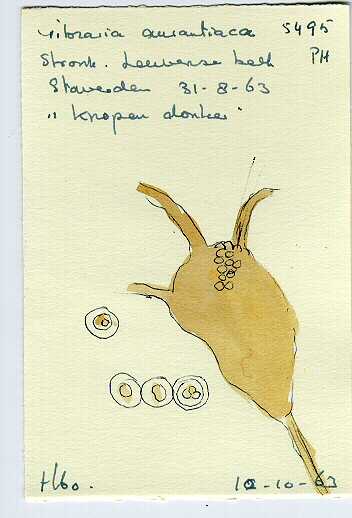 Cribraria aurantiaca 5495
Stronk. Leuvense beek PH
Staverden 31-8-63
„ Knopen donker "
Hbo. 10-10-63